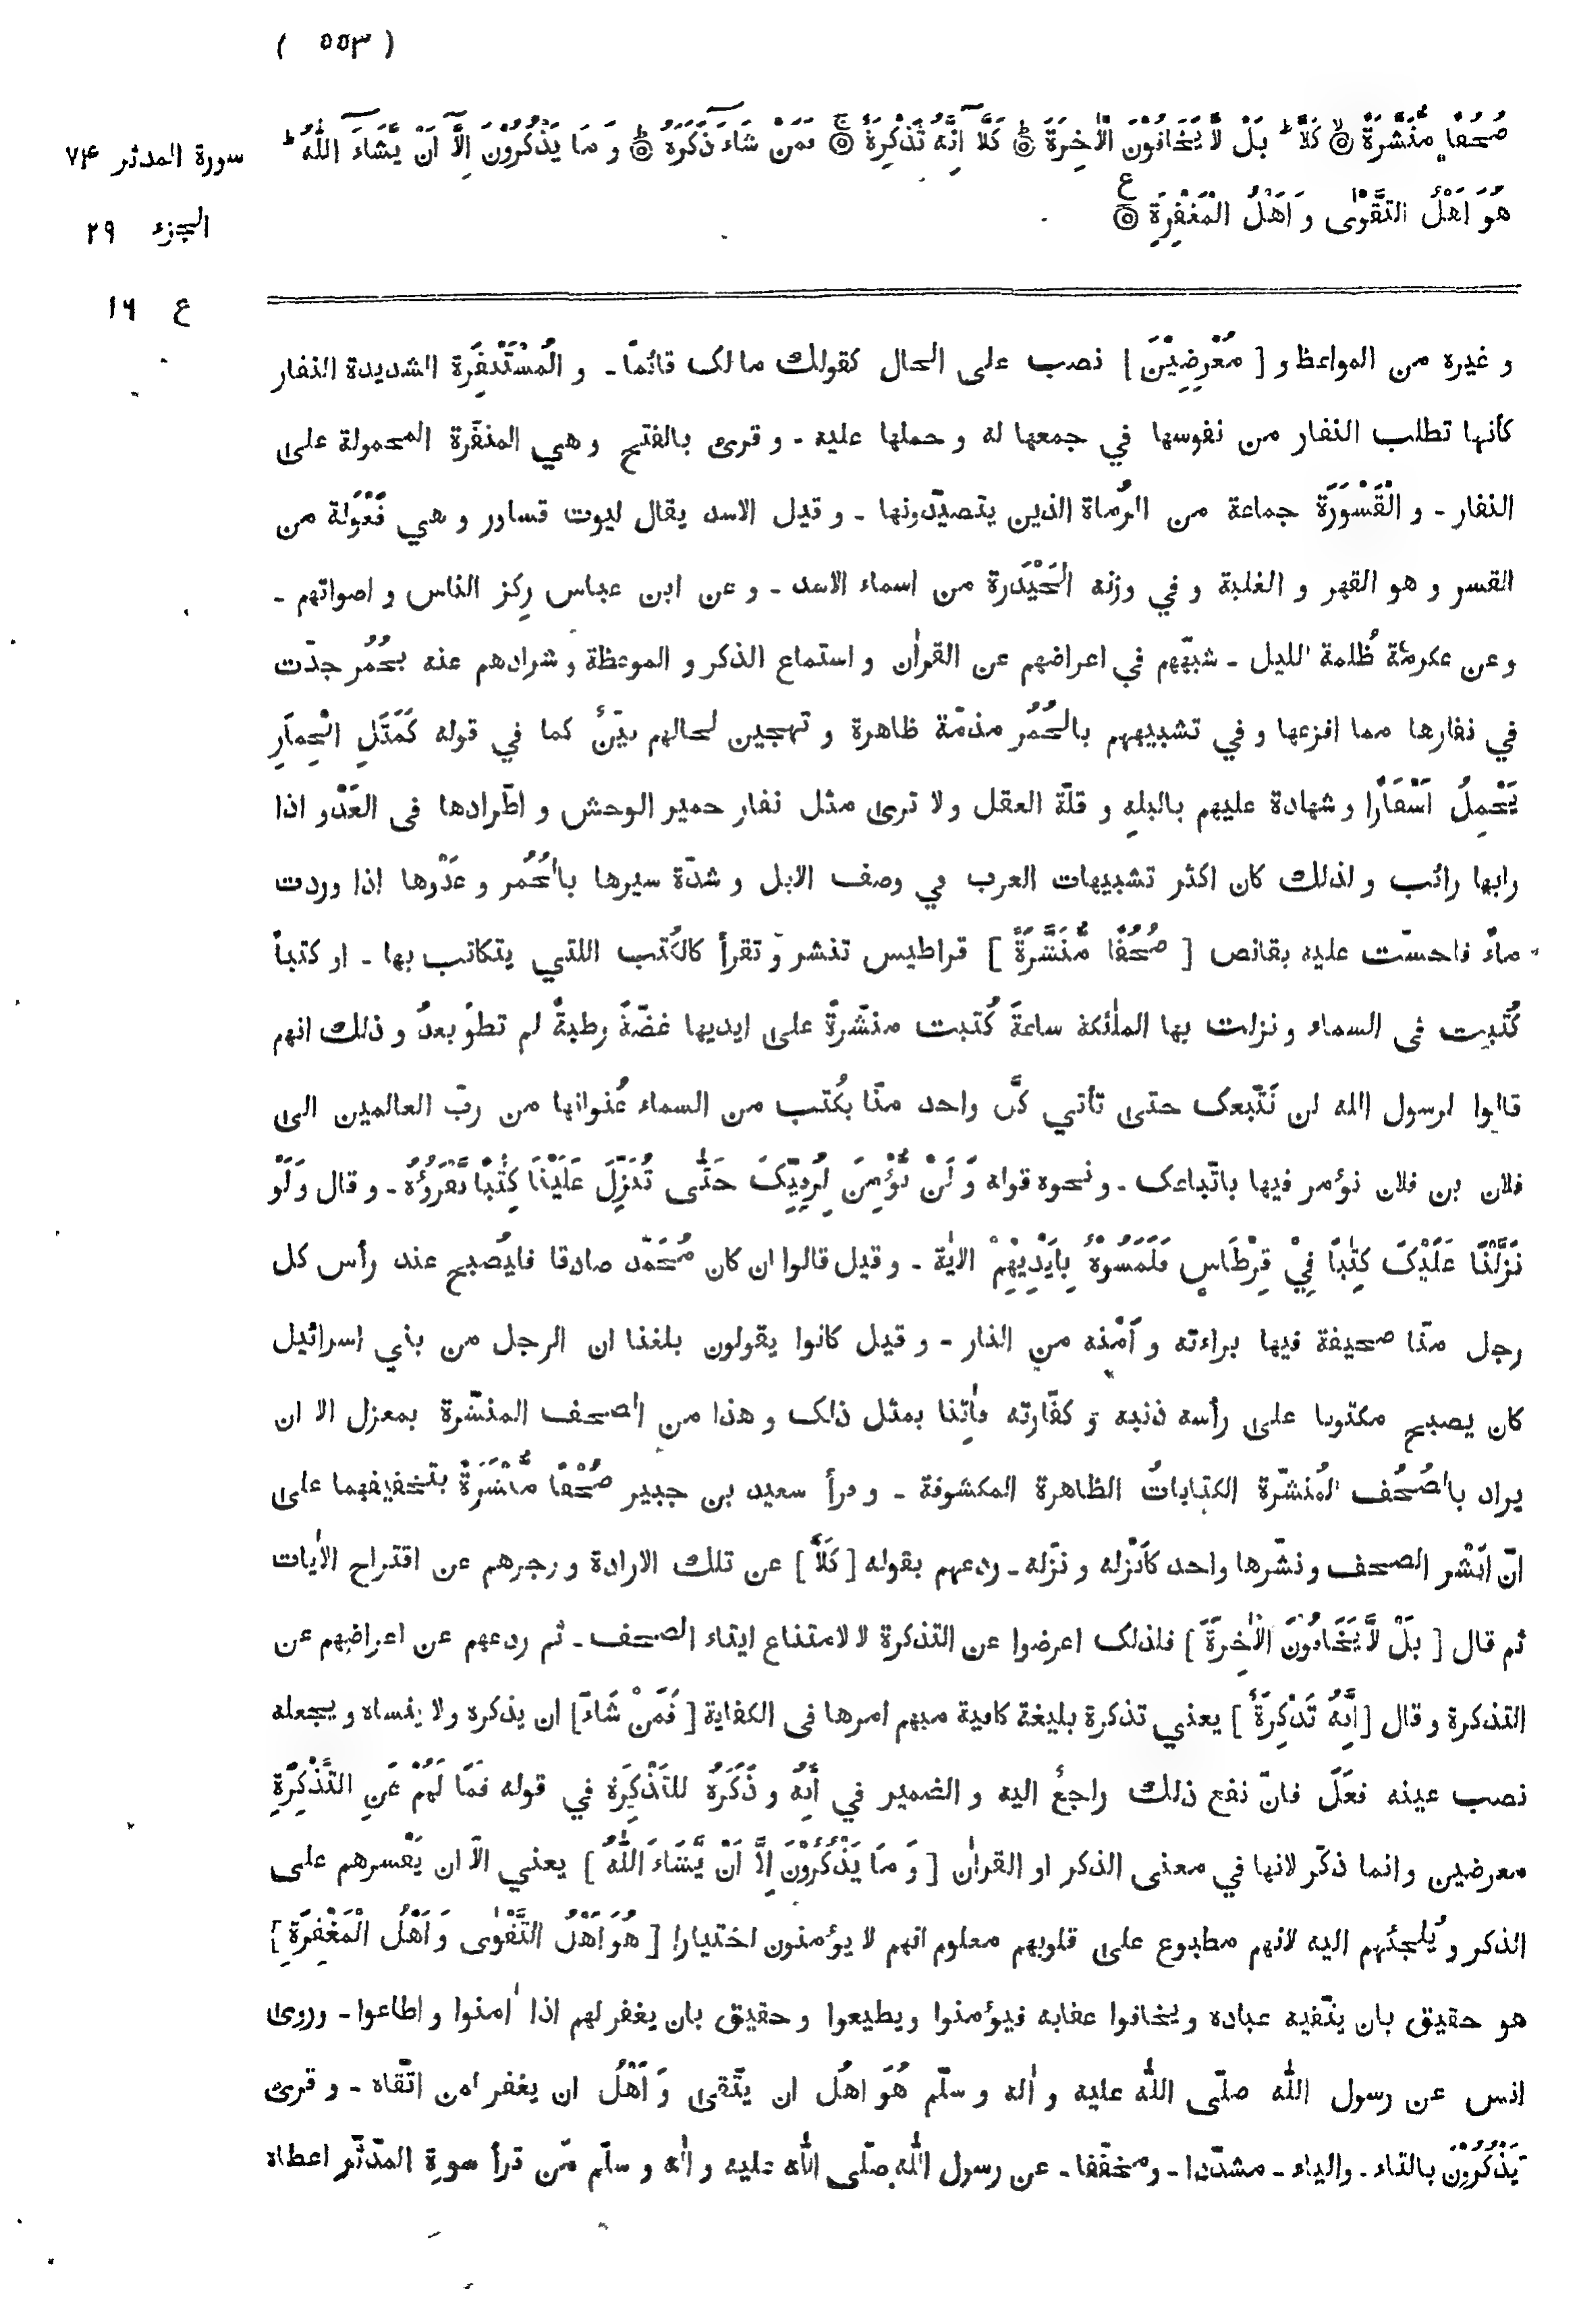 ( ٥٥٣ )
صُحُفًا مُّنَشَّرَةً ۝ كَلَّا ؕ بَلْ لَّا يَخَافُوْنَ الْاٰخِرَةَ ۝ كَلَّاۤ اِنَّهٗ تَذْكِرَةٌ ۝ فَمَنْ شَآءَ ذَكَرَهٗ ۝ وَ مَا يَذْكُرُوْنَ اِلَّاۤ اَنْ يَّشَآءَ اللّٰهُ ؕ
هُوَ اَهْلُ التَّقْوٰى وَ اَهْلُ الْمَغْفِرَةِ ۝ ع
سورة المدثر ٧۴
الجزء ٢٩
ع ١٦
و غيره من المواعظ و [ مُعْرِضِيْنَ ] نصب على الحال كقولك مالك قائمًا - و الْمُسْتَنْفِرَة الشديدة النفار
كأنها تطلب النفار من نفوسها في جمعها له و حملها عليه - و قرئ بالفتح و هي المنفّرة المحمولة على
النفار - و الْقَسْوَرَة جماعة من الرُماة الذين يتصيّدونها - و قيل الاسد يقال ليوث قساور و هي فَعْوَلة من
القسر و هو القهر و الغلبة و في وزنه الحَيْدَرة من اسماء الاسد - و عن ابن عباس رِكز الناس و اصواتهم -
و عن عكرمة ظُلمة الليل - شبّههم في اعراضهم عن القراٰن و استماع الذكر و الموعظة و شرادهم عنه بحُمُر جدّت
في نفارها مما افزعها و في تشبيههم بالحُمُر مذمّة ظاهرة و تهجين لحالهم بيّنٌ كما في قوله كَمَثَلِ الْحِمَارِ
يَحْمِلُ اَسْفَارًا و شهادة عليهم بالبله و قلّة العقل ولا ترى مثل نفار حمير الوحش و اطّرادها فى العَدْو اذا
رابها رائب و لذلك كان اكثر تشبيهات العرب في وصف الابل و شدّة سيرها بالحُمُر و عَدْوها اذا وردت
ماءً فاحسّت عليه بقانص [ صُحُفًا مُّنَشَّرَةً ] قراطيس تنشر و تقرأ كالكُتب اللتي يتكاتب بها - او كتبًا
كُتبت فى السماء و نزلت بها الملٰئكة ساعةَ كُتبت منشّرةً على ايديها غضّةً رطبةً لم تطوَ بعدُ و ذلك انهم
قالوا لرسول الله لن نَتّبعك حتى تأتي كلَّ واحد منّا بكُتب من السماء عُنوانها من ربّ العالمين الى
فلان بن فلان نؤمر فيها باتّباعك - و نحوه قوله وَ لَنْ نُّؤْمِنَ لِرُقِيِّكَ حَتّٰى تُنَزِّلَ عَلَيْنَا كِتٰبًا نَّقْرَؤُهٗ - و قال وَلَوْ
نَزَّلْنَا عَلَيْكَ كِتٰبًا فِيْ قِرْطَاسٍ فَلَمَسُوْهُ بِاَيْدِيْهِمْ الاٰية - و قيل قالوا ان كان مُحَمّد صادقا فليُصبح عند رأس كل
رجل منّا صحيفة فيها براءته و اَمْنه من النار - و قيل كانوا يقولون بلغنا ان الرجل من بني اسرائيل
كان يصبح مكتوبا على رأسه ذنبه و كفّارته فأتِنا بمثل ذلك و هذا من الصحف المنشّرة بمعزل الا ان
يراد بالصُحُف المُنشّرة الكتاباتُ الظاهرة المكشوفة - و قرأ سعيد بن جبير صُحْفًا مُنْشَرَةً بتخفيفهما على
انّ اَنْشر الصحف و نشّرها واحد كاَنْزله و نزّله - ردعهم بقوله [ كَلَّا ] عن تلك الارادة و زجرهم عن اقتراح الاٰيات
ثم قال [ بَلْ لَّا يَخَافُوْنَ الْاٰخِرَةَ ] فلذلك اعرضوا عن التذكرة لا لامتناع ايتاء الصحف - ثم ردعهم عن اعراضهم عن
التذكرة و قال [ اِنَّهٗ تَذْكِرَةٌ ] يعني تذكرة بليغة كافية مبهم امرها فى الكفاية [ فَمَنْ شَآءَ ] ان يذكره ولا ينساه و يجعله
نصب عينه فعَلَ فانّ نفع ذلك راجعٌ اليه و الضمير في اِنَّهٗ و ذَكَرَهٗ للتَذْكِرَة في قوله فَمَا لَهُمْ عَنِ التَّذْكِرَةِ
معرضين و انما ذكّر لانها في معنى الذكر او القراٰن [ وَ مَا يَذْكُرُوْنَ اِلَّا اَنْ يَّشَاءَ اللّٰهُ ] يعني الّا ان يَقْسرهم على
الذكر و يُلجئهم اليه لانهم مطبوع على قلوبهم معلوم انهم لا يؤمنون اختيارا [ هُوَ اَهْلُ التَّقْوٰى وَ اَهْلُ الْمَغْفِرَةِ ]
هو حقيق بان يتّقيه عباده و يخافوا عقابه فيؤمنوا و يطيعوا و حقيق بان يغفر لهم اذا اٰمنوا و اطاعوا - وروى
انس عن رسول اللّٰه صلّى اللّٰه عليه و اٰله و سلّم هُوَ اهلُ ان يتّقى وَ اَهْلُ ان يغفر لمن اتّقاه - و قرئ
يَذْكُرُوْنَ بالتاء - والياء - مشدّدا - و مخفّفا - عن رسول اللّٰه صلّى اللّٰه عليه و اٰله و سلّم مّن قرأ سورة المدّثّر اعطاه